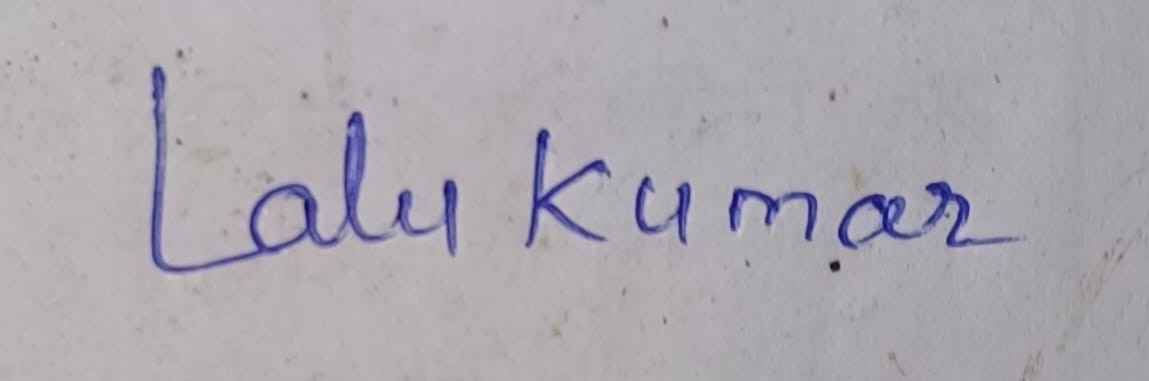 Lalu Kumar